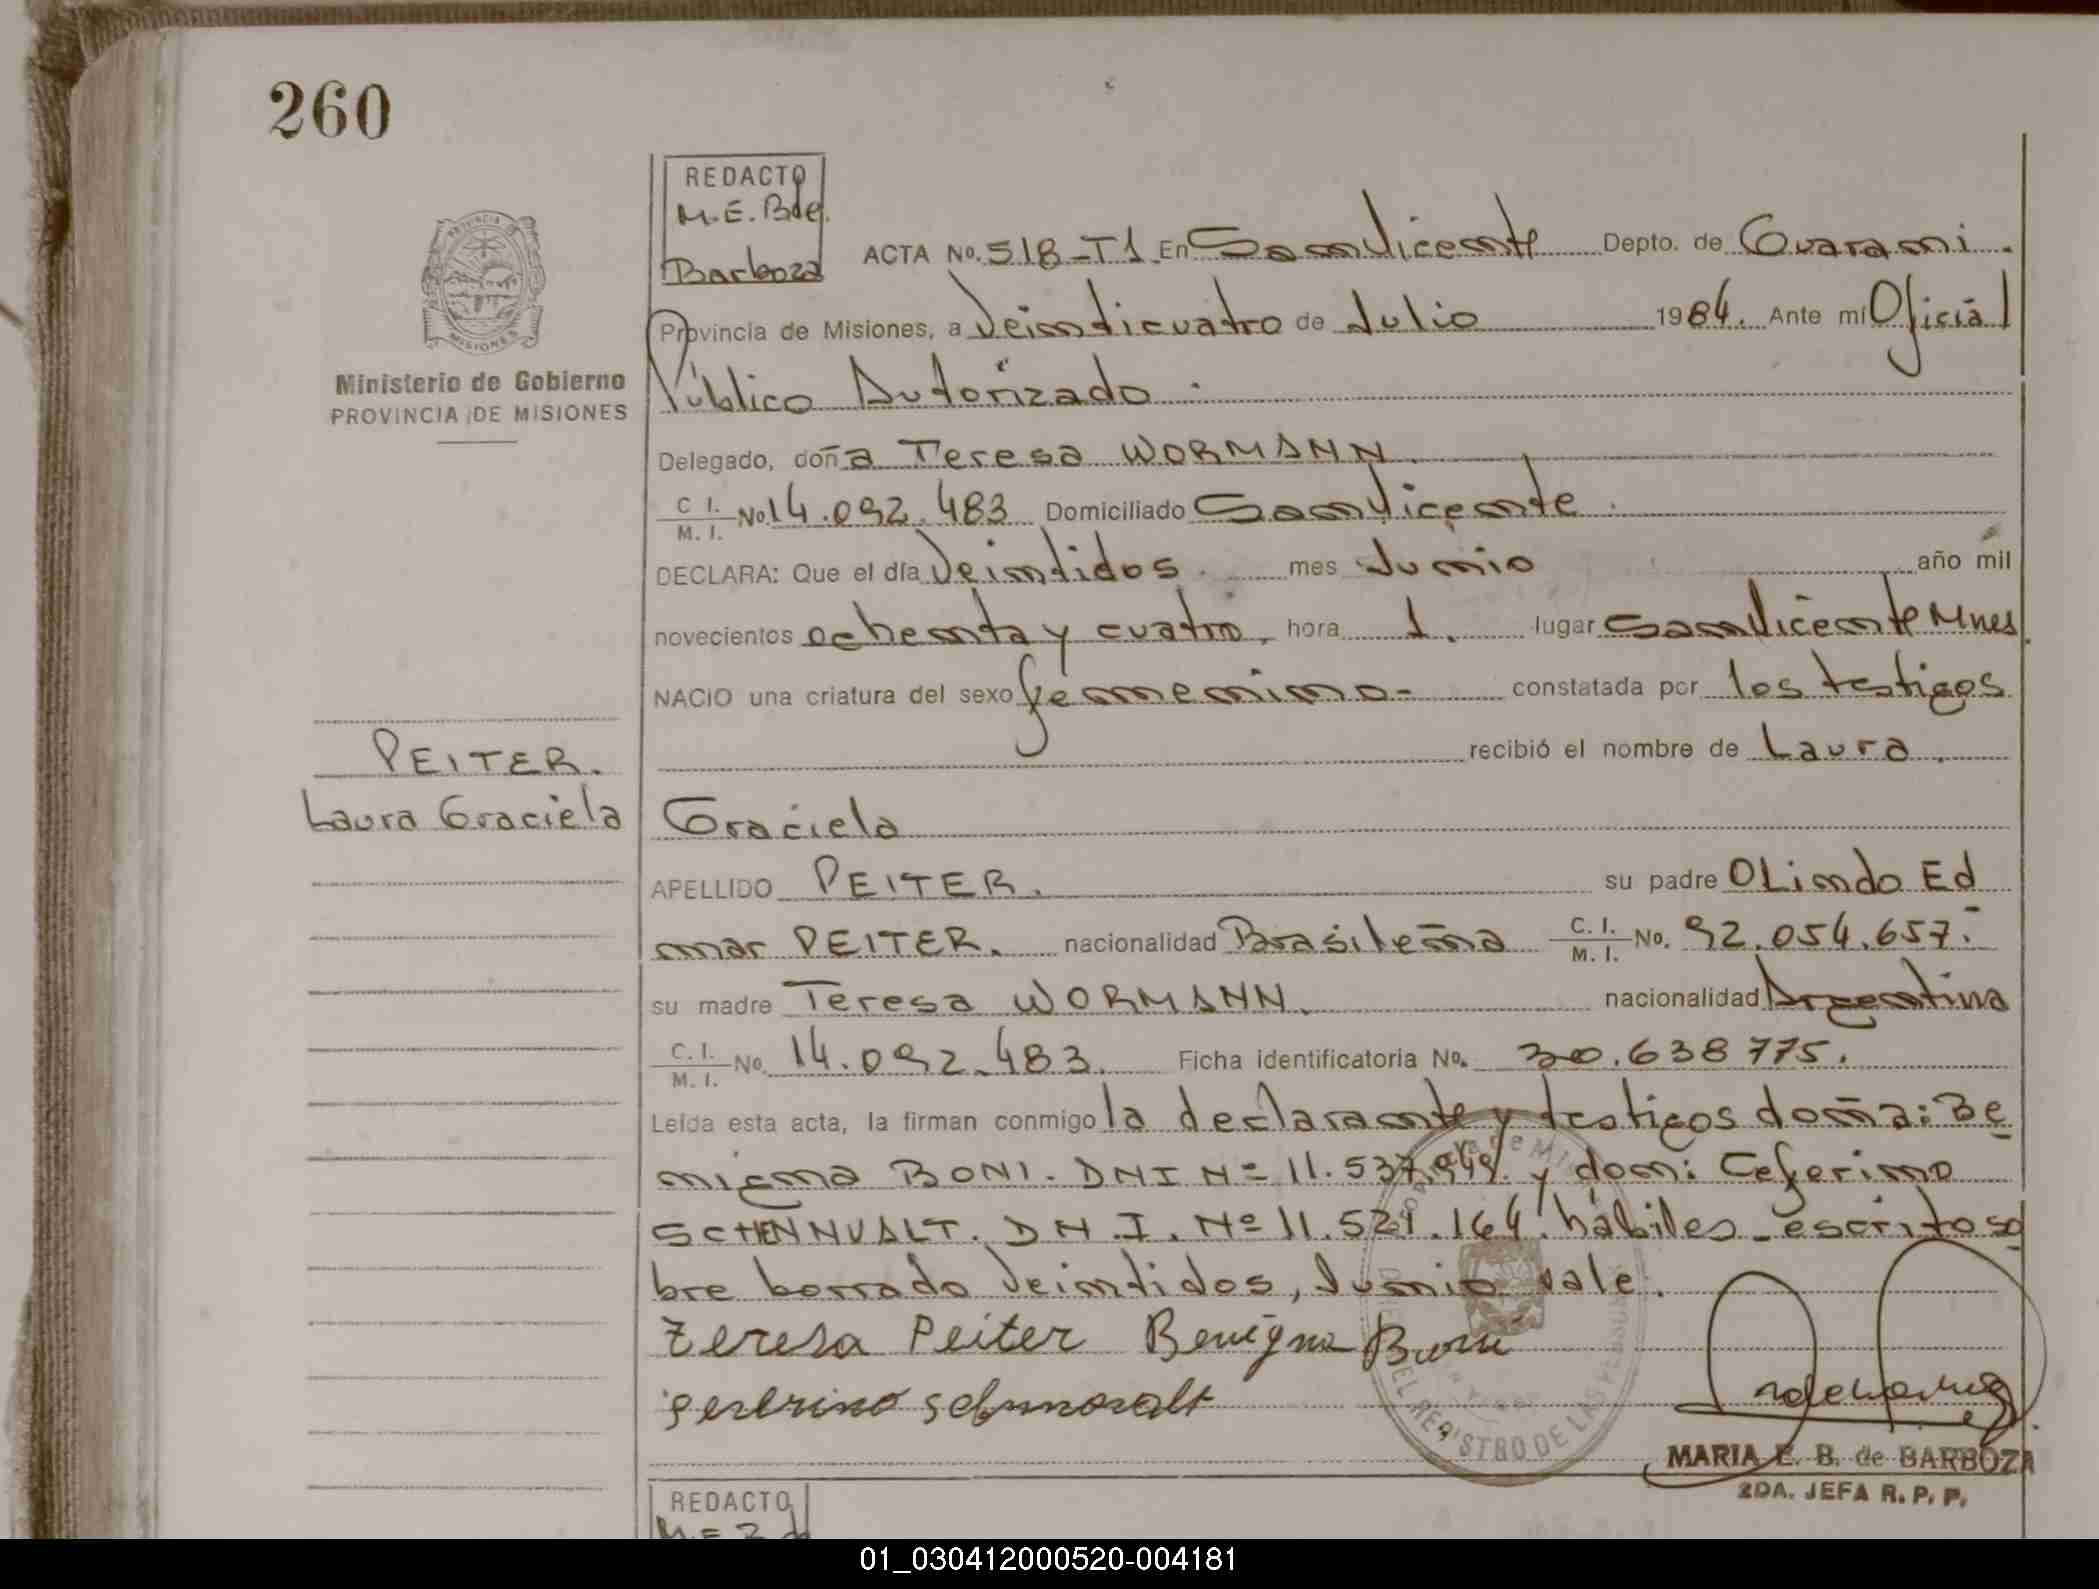 260
REDACTO
M.E.Bde.
Barboza
ACTA No. 518-T1 En San Vicente Depto. de Guarani.
Provincia de Misiones, a Veinticuatro de Julio 1984. Ante mí Oficial
Público Autorizado.
PROVINCIA DE
MISIONES
Ministerio de Gobierno
PROVINCIA DE MISIONES
Delegado, doña Teresa WORMANN.
C. I. / M. I. No. 14.092.483 Domiciliado San Vicente.
DECLARA: Que el día Veintidos. mes Junio año mil
novecientos ochenta y cuatro, hora 1. lugar San Vicente Mnes.
NACIO una criatura del sexo femenino- constatada por los testigos
recibió el nombre de Laura
PEITER.
Laura Graciela
Graciela
APELLIDO PEITER. su padre OLindo Ed
mar PEITER. nacionalidad Brasileña C. I. / M. I. No. 92.054.657.-
su madre Teresa WORMANN. nacionalidad Argentina
C. I. / M. I. No. 14.092.483. Ficha identificatoria No. 30.638775.
Leída esta acta, la firman conmigo la declarante y testigos doña: Be
nigna BONI. DNI Nº 11.537. y don: Ceferino
SCHENNVALT. D.N.I. Nº 11.521.164. hábiles - escrito so
bre borrado Veintidos, Junio vale.
Teresa Peiter Benigna Boni
MARIA E. B. de BARBOZA
2DA. JEFA R. P. P.
EL REGISTRO DE LAS PERSONAS
REDACTO
01_030412000520-004181